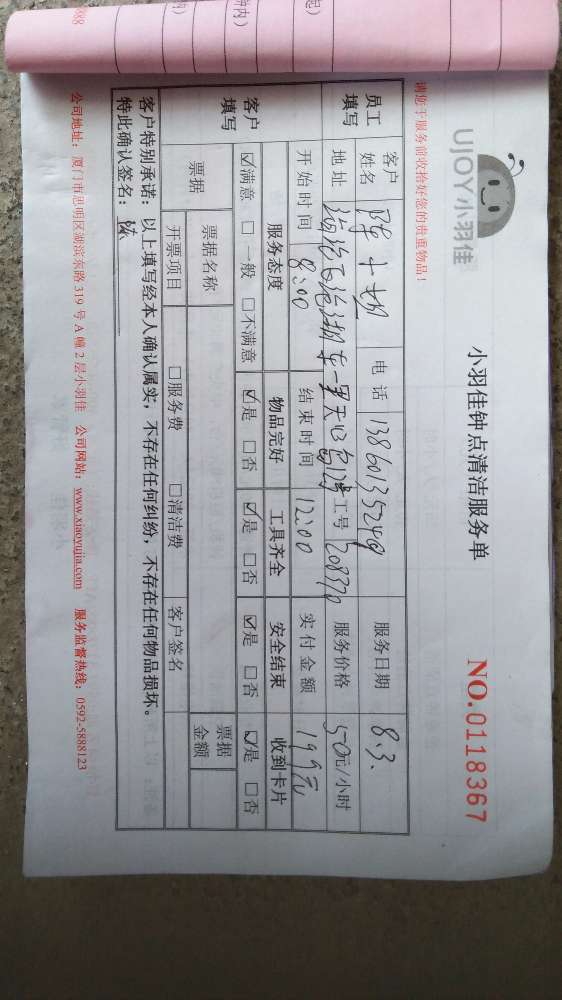 UJOY小羽佳
小羽佳钟点清洁服务单
NO.0118367
请您于服务前收拾好您的贵重物品!
员工填写
客户姓名 陈小姐 电话 13860135249 服务日期 8.3.
地址 工号 208370 服务价格 50元/小时
开始时间 8:00 结束时间 12:00 实付金额 199元
客户填写
服务态度 物品完好 工具齐全 安全结束 收到卡片
☑满意 □一般 □不满意 ☑是 □否 ☑是 □否 ☑是 □否 ☑是 □否
票据 票据名称 票据金额
开票项目 □服务费 □清洁费 客户签名
客户特别承诺:以上填写经本人确认属实,不存在任何纠纷,不存在任何物品损坏。
特此确认签名:陈
公司地址:厦门市思明区湖滨东路319号A幢2层小羽佳 公司网站:www.xiaoyujia.com 服务监督热线:0592-5888123